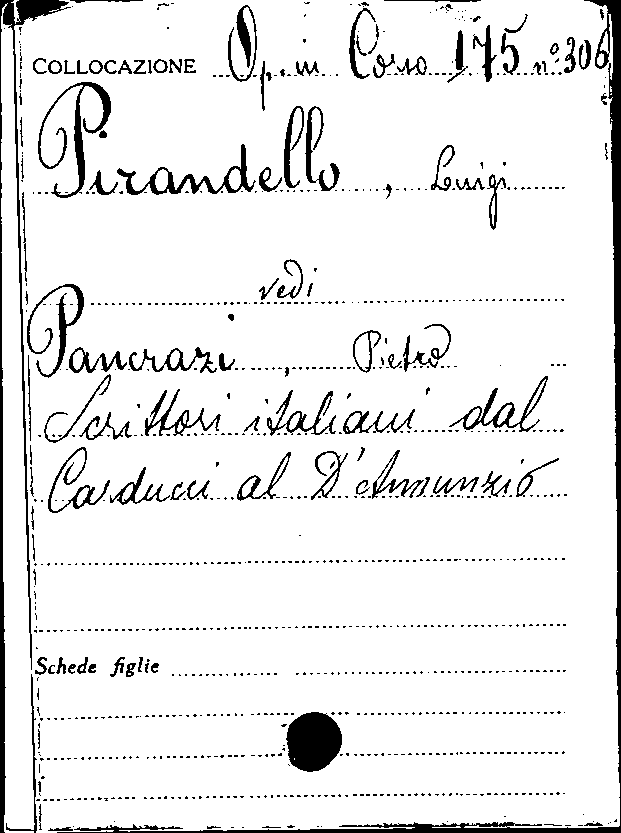 COLLOCAZIONE Op. in Corso 175 n° 306
Pirandello, Luigi
vedi
Pancrazi, Pietro
Scrittori italiani dal
Carducci al D'Annunzio
Schede figlie